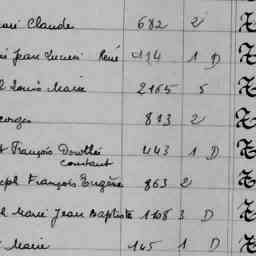 Claude 682 2
Jean Lucien René 1 D
Louis Marie 2165 5
Georges 813 2
François Dorothé 443 1 D
constant
François Eugène 863 2
Marie Jean Baptiste 1708 3 D
Marie 145 1 D